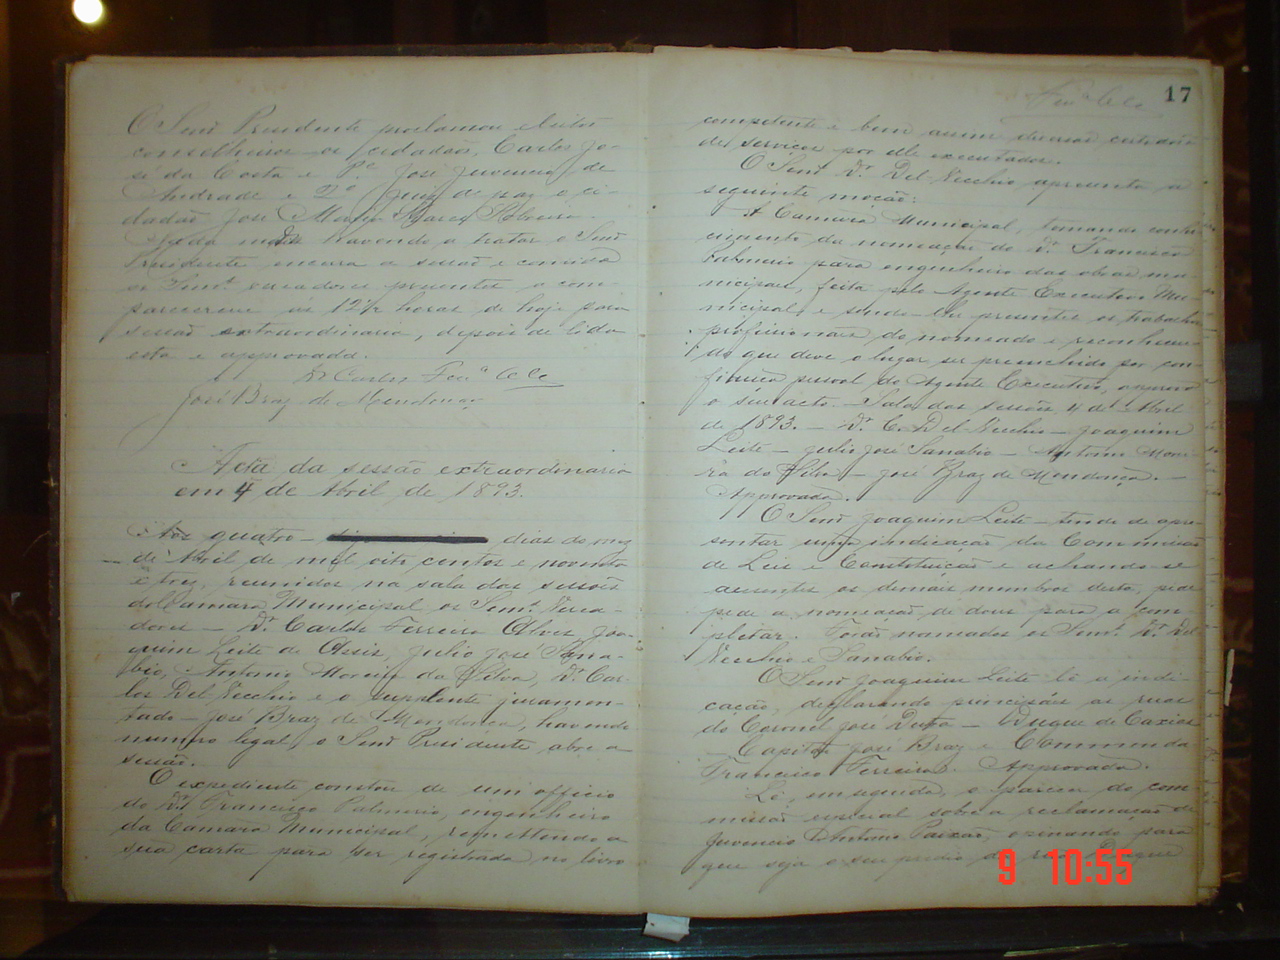 O Senr Presidente proclamou eleitos
conselheiros os cidadãos, Carlos Jo-
sé da Costa e Pe José Juvencio de
Andrade e 2º Juiz de paz o ci-
dadão José
Nada mais havendo a tratar o Senr
Presidente encerra a sessão e convida
os Senrs vereadores presentes a com-
parecerem ás 12½ horas de hoje para
sessão extraordinaria, depois de lida
esta e approvada.
Dr Carlos Ferª
José Braz de Mendonça
Acta da sessão extraordinaria
em 4 de Abril de 1893.
Aos quatro dias do mez
de Abril de mil oito centos e noventa
e tres, reunidos na sala das sessões
da Camara Municipal os Senrs Verea-
dores – Dr Carlos Ferreira Alves, Joa-
quim Leite de Assis, Julio José Sana-
bio, Antonio Moreira da Silva, Dr Car-
los Del-Vecchio e o suplente juramen-
tado – José Braz de Mendonça, havendo
numero legal, o Senr Presidente abre a
sessão.
O expediente constou de um officio
do Dr Francisco Palmerio, engenheiro
da Camara Municipal, remettendo a
sua carta para ser registrada no livro
17
competente e bem assim diversas certidões
de serviços por elle executados.
O Senr Dr Del-Vecchio apresenta a
seguinte moção:
A Camara Municipal, tomando conhe-
cimento da nomeação do Dr Francisco
Palmerio para engenheiro das obras mu-
nicipaes, feita pelo Agente Executivo Mu-
nicipal, e sendo-lhe presentes os trabalhos
profissionaes do nomeado e reconhecen-
do que deve o lugar ser preenchido por con-
fiança pessoal do Agente Executivo, approva
o seu acto. – Sala das sessões 4 de Abril
de 1893. – Dr C. Del-Vecchio – Joaquim
Leite – Julio José Sanabio – Antonio Morei-
ra da Silva – José Braz de Mendonça. –
Approvada.
O Senr Joaquim Leite – tendo de apre-
sentar uma indicação da Commissão
de Leis e Constituição e achando-se
ausentes os demais membros desta, pede
pede a nomeação de dous para a com-
pletar. Forão nomeados os Senrs Dr Del
Vecchio e Sanabio.
O Senr Joaquim Leite lê a indi-
cação, declarando principaes as ruas
do Coronel José Dutra – Duque de Caxias
– Capitão José Braz e Commenda
Francisco Ferreira. Approvada.
Lê, em seguida, o parecer da com
missão especial sobre a reclamação de
Juvencio Antonio Paixão, opinando para
que seja o seu predio da rua Duque
9 10:55